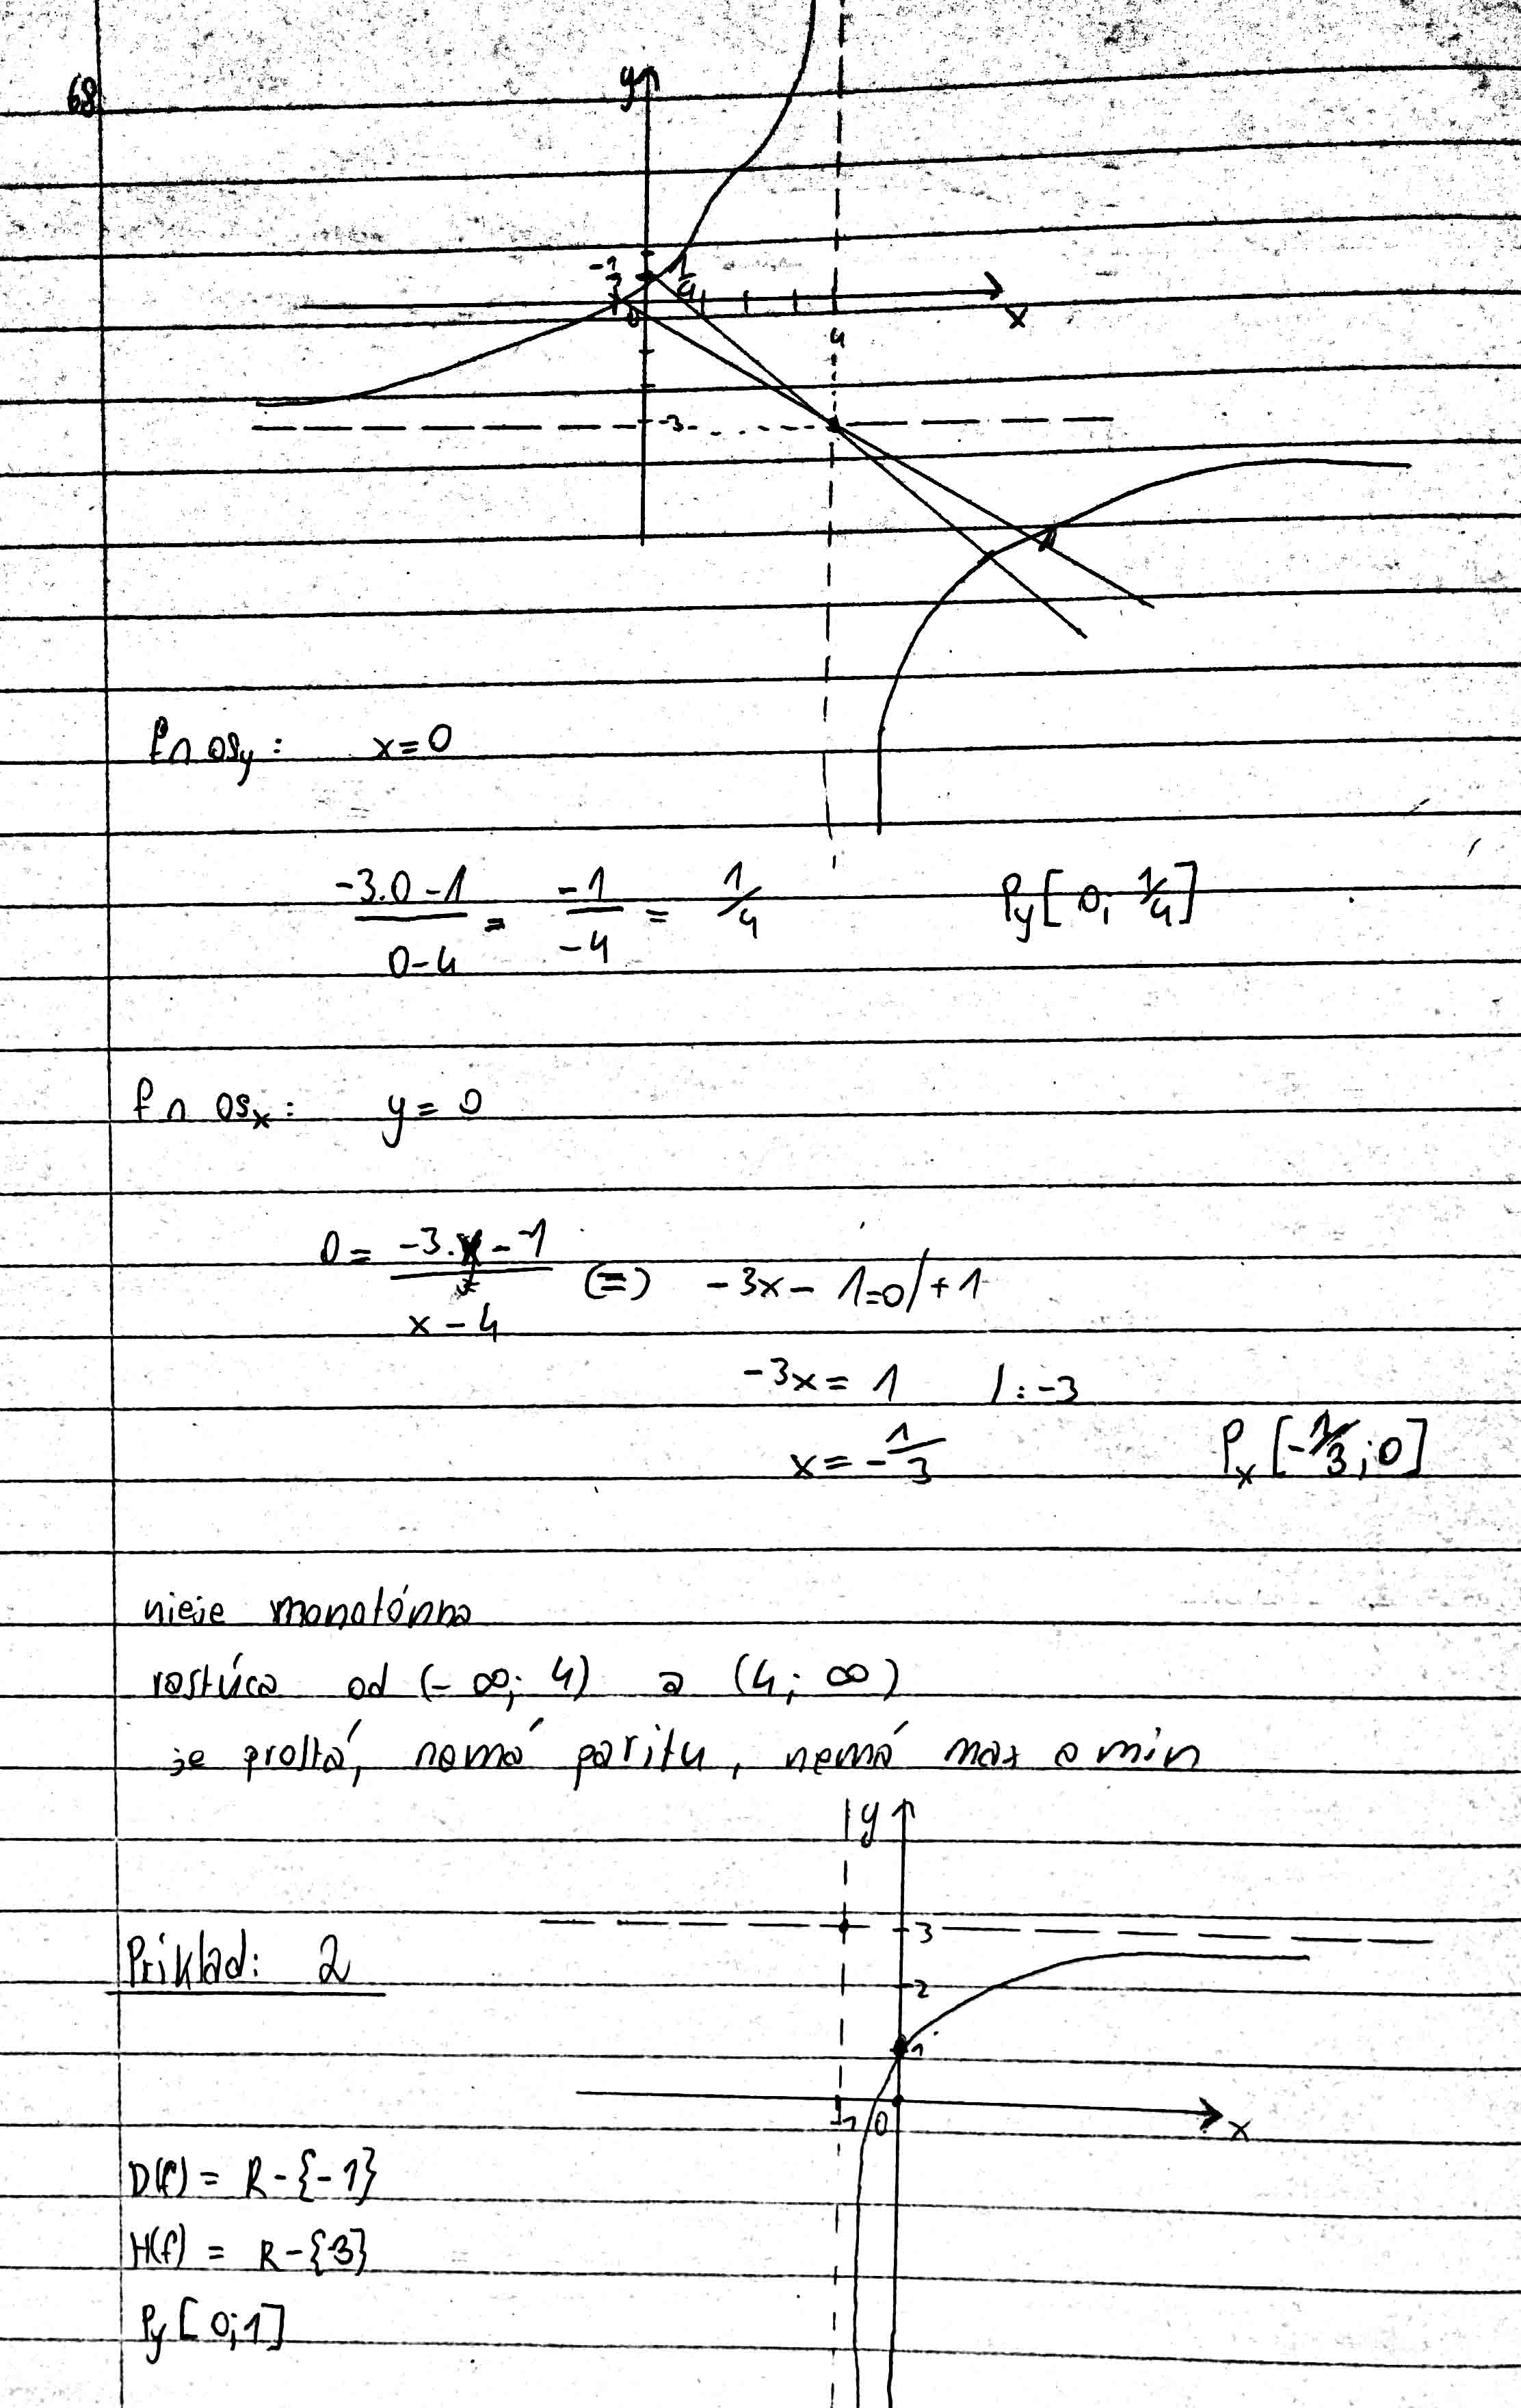 68
y
-1/3 1/4
0 4 x
-3
f∩osy: x=0
(-3.0-1)/(0-4) = (-1)/(-4) = 1/4 Py[0; 1/4]
f∩ osx: y=0
0= (-3.x-1)/(x-4) (=) -3x-1=0/+1
-3x=1 /:-3
x=-1/3 Px[-1/3;0]
nieje monotónna
rastúca od (-∞; 4) a (4; ∞)
je prostá, nemá paritu, nemá max a min
y
3
Priklad: 2
2
1
-1 0 x
D(f) = R-{-1}
H(f) = R-{3}
Py[0;1]